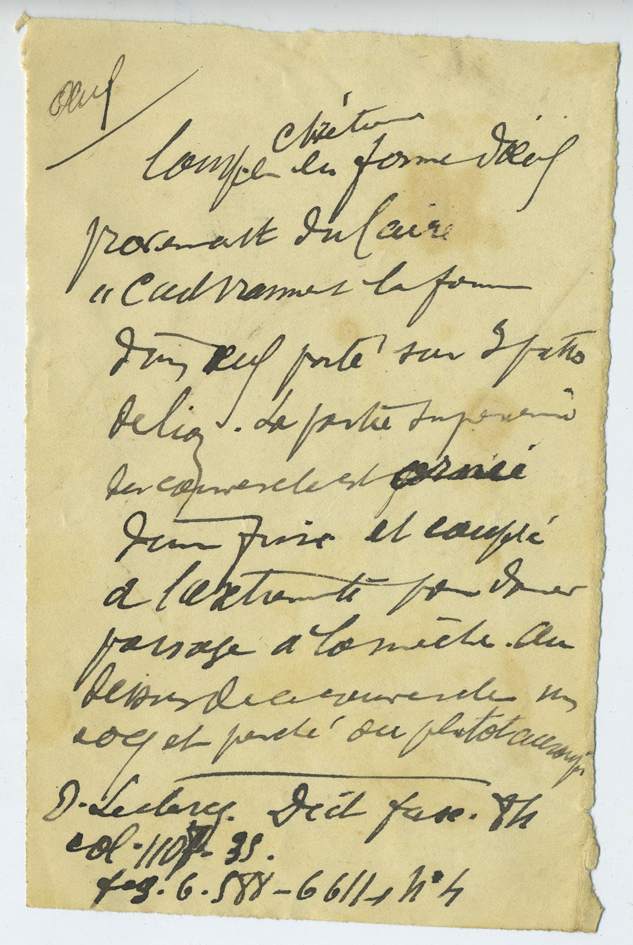 œuf
chrétienne
Lampe en forme d'œuf
provenant du Caire
"
la forme
d'un œuf porté sur 3 pattes
de lion. La partie supérieure
du couvercle est ornée
d'une frise et coupée
à l'extrémité pour donner
passage à la mèche. Au
dessus de ce couvercle un
coq est perché ou plutôt accroupi
D. Leclercq. Dict fasc.
col. 33.
fig. 6.588 - 6611, n° 4